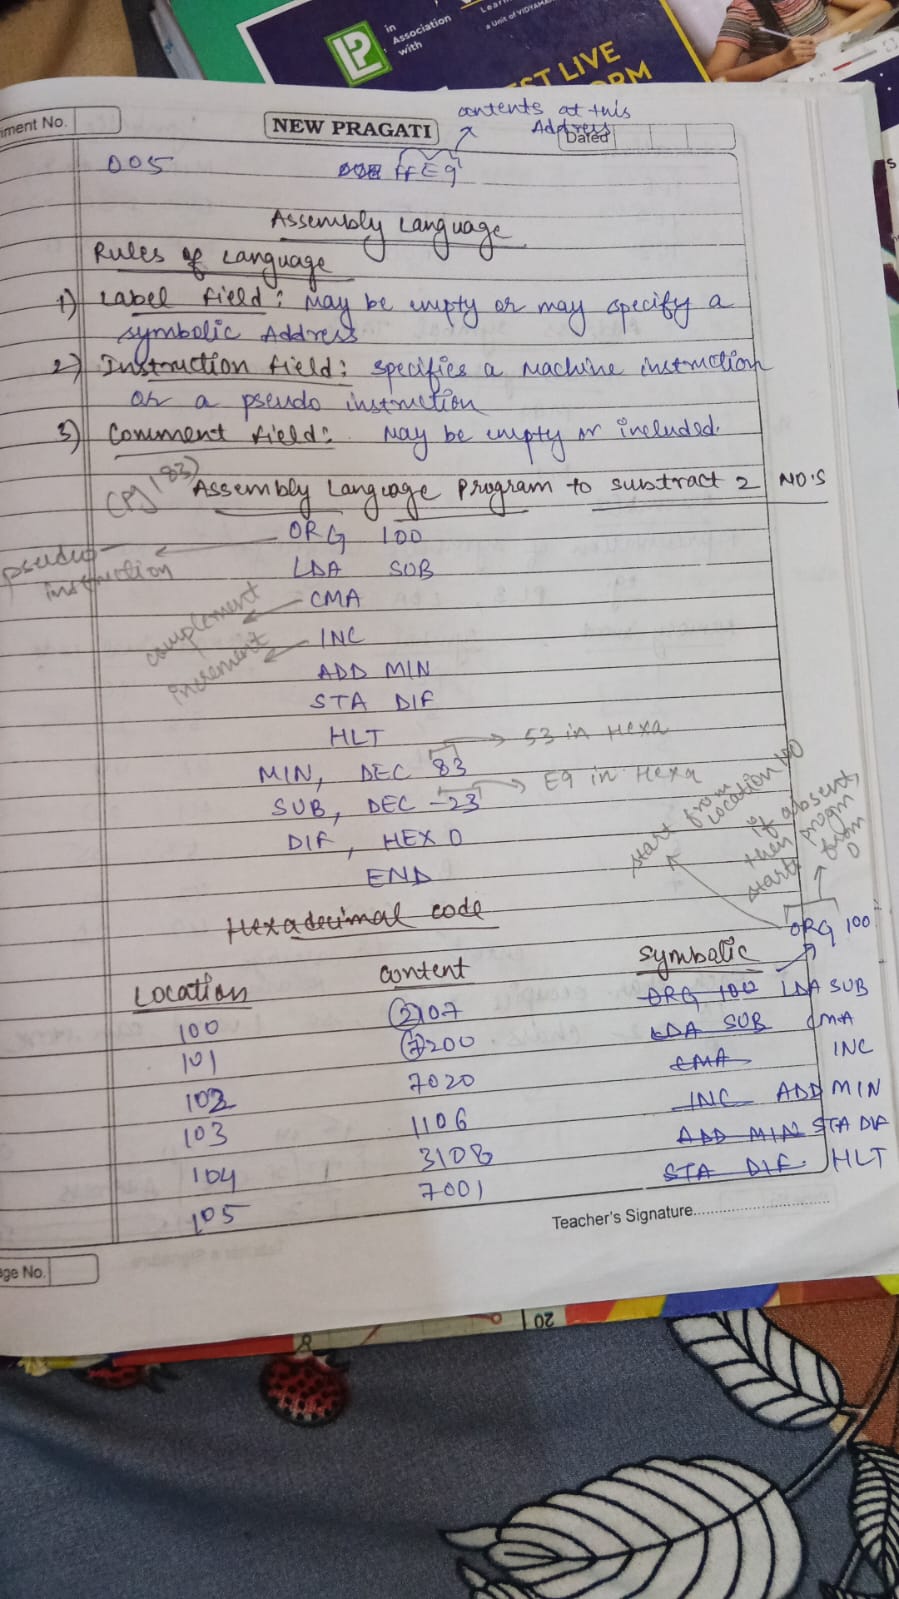 in
Association
with
LP
a Unit of VIDYAMA
ST LIVE
ORM
iment No.
NEW PRAGATI
contents at this
Address
Dated
005 ffE9
Assembly Language
Rules of Language
1) Label field: May be empty or may specify a
symbolic Address
2) Instruction field: specifies a Machine instruction
or a pseudo instruction
3) Comment field: May be empty or included.
(Pg 183) Assembly Language Program to substract 2 NO'S
pseudo instruction
ORG 100
LDA SUB
complement
CMA
increment
INC
ADD MIN
STA DIF
HLT
MIN, DEC 83 → 53 in Hexa
SUB, DEC -23 → E9 in Hexa
DIF, HEX 0
END
start from location 100
if absent, then progm starts from 0
Hexadecimal code
ORG 100
Location Content Symbolic
100 2107 ORG 100 LDA SUB
101 7200 LDA SUB CMA
102 7020 CMA INC
103 1106 INC ADD MIN
104 3108 ADD MIN STA DIF
105 7001 STA DIF HLT
Teacher's Signature
age No.
20